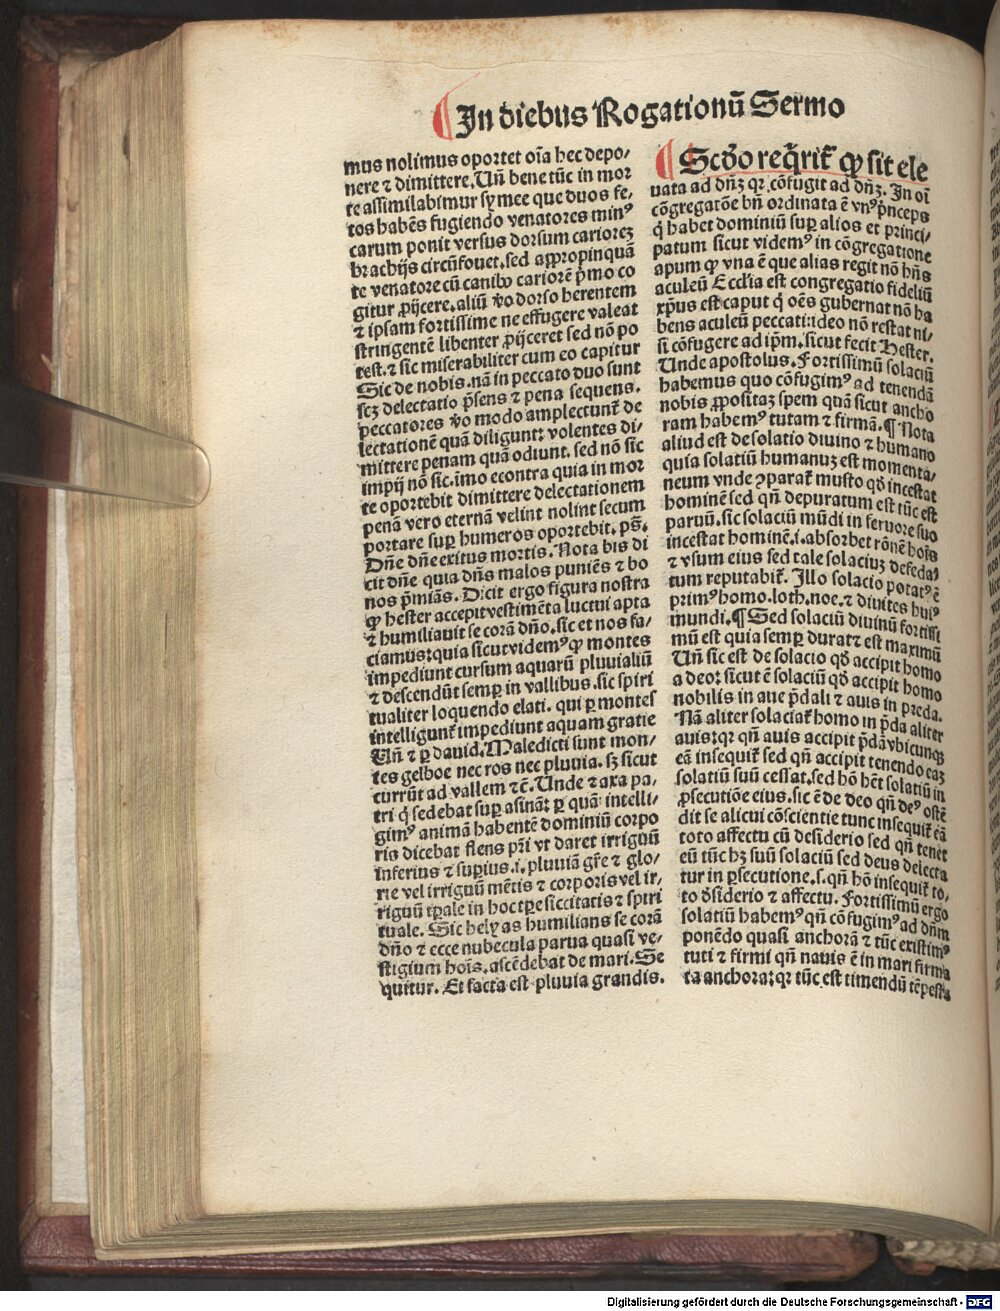 ¶ In diebus Rogationū Sermo
mus nolimus oportet oīa hec depo/
nere ⁊ dimittere. Uñ bene tūc in mor
te assimilabimur symee que duos fe/
tos habēs fugiendo venatores minꝰ
carum ponit versus dorsum cariorez
brachijs circūfouet. sed appropinquā
te venatore cū canibꝰ cariorē pͥmo co
gitur ꝓijcere. aliū v̄o dorso herentem
⁊ ipsam fortissime ne effugere valeat
stringentē libenter ꝓijceret sed nō po
test. ⁊ sic miserabiliter cum eo capitur
Sic de nobis. nā in peccato duo sunt
scz delectatio p̄sens ⁊ pena sequens.
peccatores v̄o modo amplectunt̄ de
lectationē quā diligunt: volentes di/
mittere penam quā odiunt. sed nō sic
impij nō sic. imo econtra quia in mor
te oportebit dimittere delectationem
penā vero eternā velint nolint secum
portare suꝑ humeros oportebit. ps̄.
Dñe dñe exitus mortis. Nota bis di
cit dñe quia dñs malos puniēs ⁊ bo
nos p̄miās. Dicit ergo figura nostra
ꝙ hester accepit vestimēta luctui apta
⁊ humiliauit se corā dño. sic et nos fa/
ciamus: quia sicut videmꝰ ꝙ montes
impediunt cursum aquarū pluuialiū
⁊ descendūt semꝑ in vallibus. sic spiri
tualiter loquendo elati. qui ꝑ montes
intelligunt̄ impediunt aquam gratie
Uñ ⁊ ꝑ dauid. Maledicti sunt mon/
tes gelboe nec ros nec pluuia. sz sicut
currūt ad vallem ⁊ cē. Unde ⁊ axa pa/
tri q̄ sedebat suꝑ asinā: ꝑ quā intelli/
gimꝰ animā habentē dominiū corpo
ris dicebat flens pr̄i vt daret irriguū
inferius ⁊ suꝑius. i. pluuiā gr̄e ⁊ glo/
rie vel irriguū mētis ⁊ corporis vel ir/
riguū tp̄ale in hoc tp̄e siccitatis ⁊ spiri
tuale. Sic helyas humilians se corā
dño ⁊ ecce nubecula parua quasi ve/
stigium hoīs. ascēdebat de mari. Se
quitur. Et facta est pluuia grandis.
¶ Scd̄o req̄rit̄ ꝙ sit ele
uata ad dñz qꝛ cōfugit ad dñz. In oī
cōgregatōe bñ ordinata ē vnꝰ p̄nceps
q̄ habet dominiū suꝑ alios et princi/
patum sicut videmꝰ in cōgregatione
apum ꝙ vna ē que alias regit nō hñs
aculeū Eccl̄ia est congregatio fideliū
xp̄us est caput q̄ oēs gubernat nō ha
bens aculeū peccati: ideo nō restat ni/
si cōfugere ad ip̄m. sicut fecit Hester.
Unde apostolus. Fortissimū solaciū
habemus quo cōfugimꝰ ad tenendā
nobis ꝓpositaz spem quā sicut ancho
ram habemꝰ tutam ⁊ firmā. ¶ Nota
aliud est de solatio diuino ⁊ humano
quia solatiū humanuz est momenta/
neum vnde ꝯparat̄ musto qd̄ incestat
hominē sed qñ depuratum est tūc est
paruū. sic solaciū mūdi in feruore suo
incestat hominē. i. absorbet rōnē hoīs
⁊ vsum eius sed tale solaciuz defeda/
tum reputabit̄. Illo solacio potatꝰ ē
primꝰ homo. loth. noe. ⁊ diuites huiꝰ
mundi. ¶ Sed solaciū diuinū fortissi
mū est quia semꝑ durat ⁊ est maximū
Uñ sic est de solacio qd̄ accipit homo
a deo: sicut ē solaciū qd̄ accipit homo
nobilis in aue p̄dali ⁊ auis in preda.
Nā aliter solaciat̄ homo in p̄da aliter
auis: qꝛ qñ auis accipit p̄dā vbicunqꝫ
eā insequit̄ sed qñ accipit tenendo eaz
solatiū suū cessat. sed hō hēt solatiū in
ꝓsecutiōe eius. sic ē de deo qñ deꝰ ostē
dit se alicui cōscientie tunc insequit̄ eā
toto affectu cū desiderio sed qñ tenēt
eū tūc hz suū solaciū sed deus delecta
tur in ꝑsecutione. s. qñ hō insequit̄ to/
to d̄siderio ⁊ affectu. Fortissimū ergo
solatiū habemꝰ qñ cōfugimꝰ ad dñm
ponēdo quasi anchorā ⁊ tūc existimꝰ
tuti ⁊ firmi qñ nauis ē in mari firma
ta anchora: qꝛ tūc est timendū tēpesta
Digitalisierung gefördert durch die Deutsche Forschungsgemeinschaft - DFG